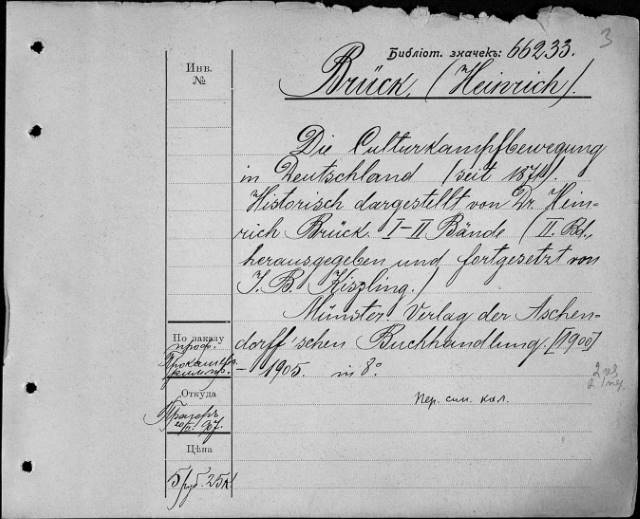 3
Библіот. значекъ: 66233.
Инв.
№
Brück. (Heinrich).
Die Culturkampfbewegung
in Deutschland (seit 1871).
Historisch dargestellt von Dr. Hein-
rich Brück. I-II Bände (II. Bd.,
herausgegeben und fortgesetzt von
J. B. Kiszling.)
Münster. Verlag der Aschen-
dorff'schen Buchhandlung. [1900]
- 1905. in 8°.
По заказу
проф.
Откуда
Пер. син. кол.
Цѣна
5 руб. 25 к.